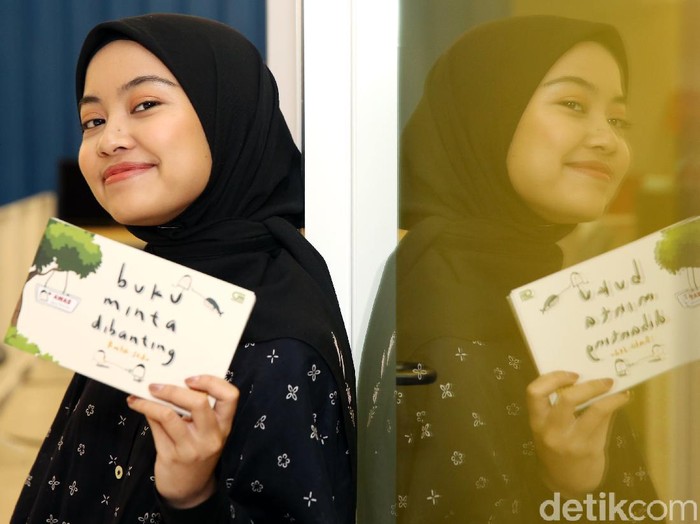 buku
minta
dibanting
detikcom